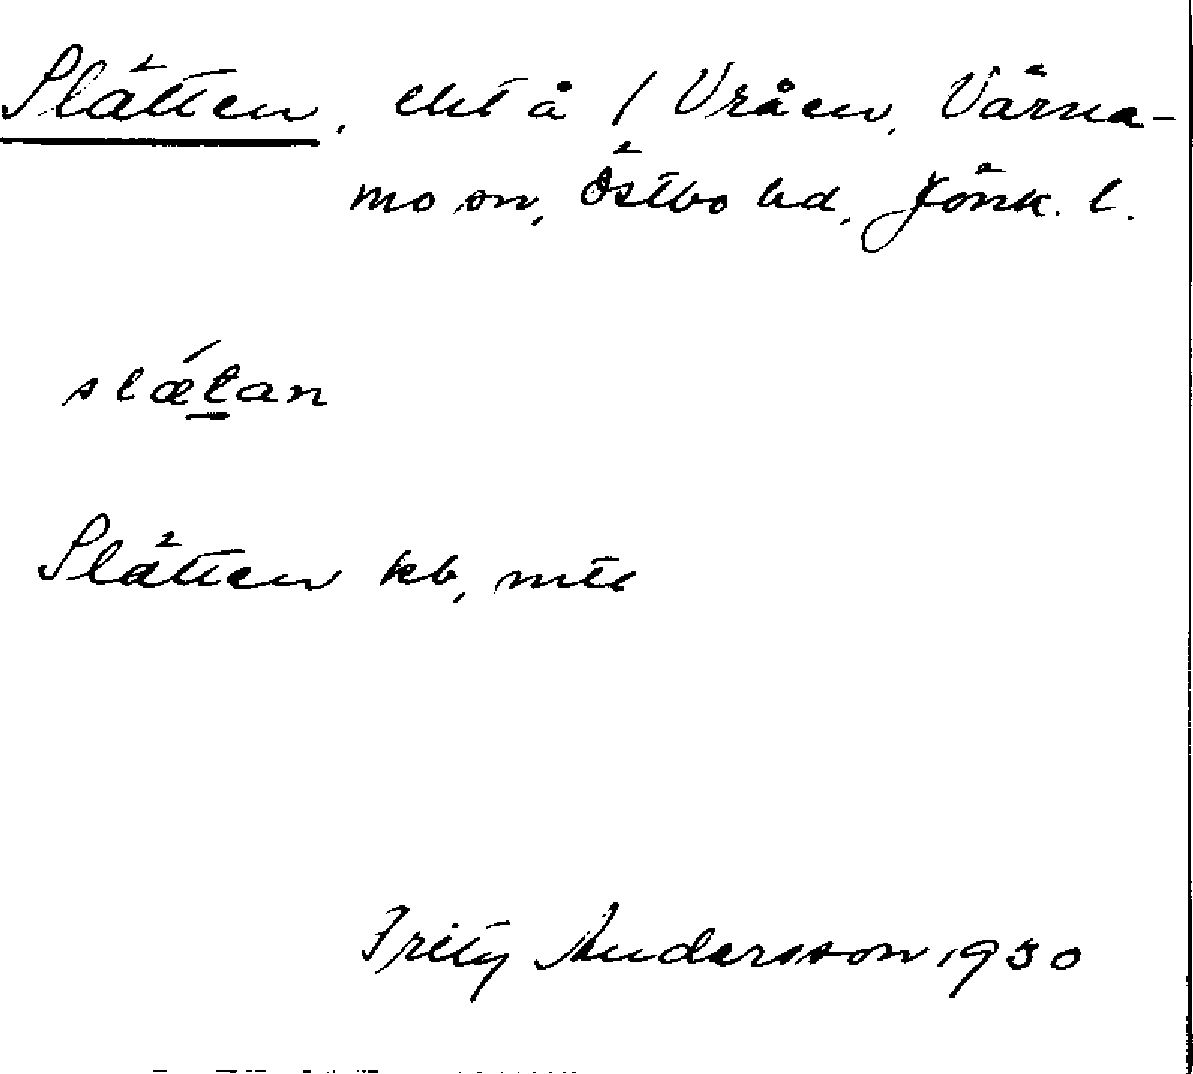 Slätten, ekt å 1 Vråen, Värna-
mo sn, Östbo hd, Jönk. l.
slǽtan
Slätten kb, mtl
Fritz Andersson 1930